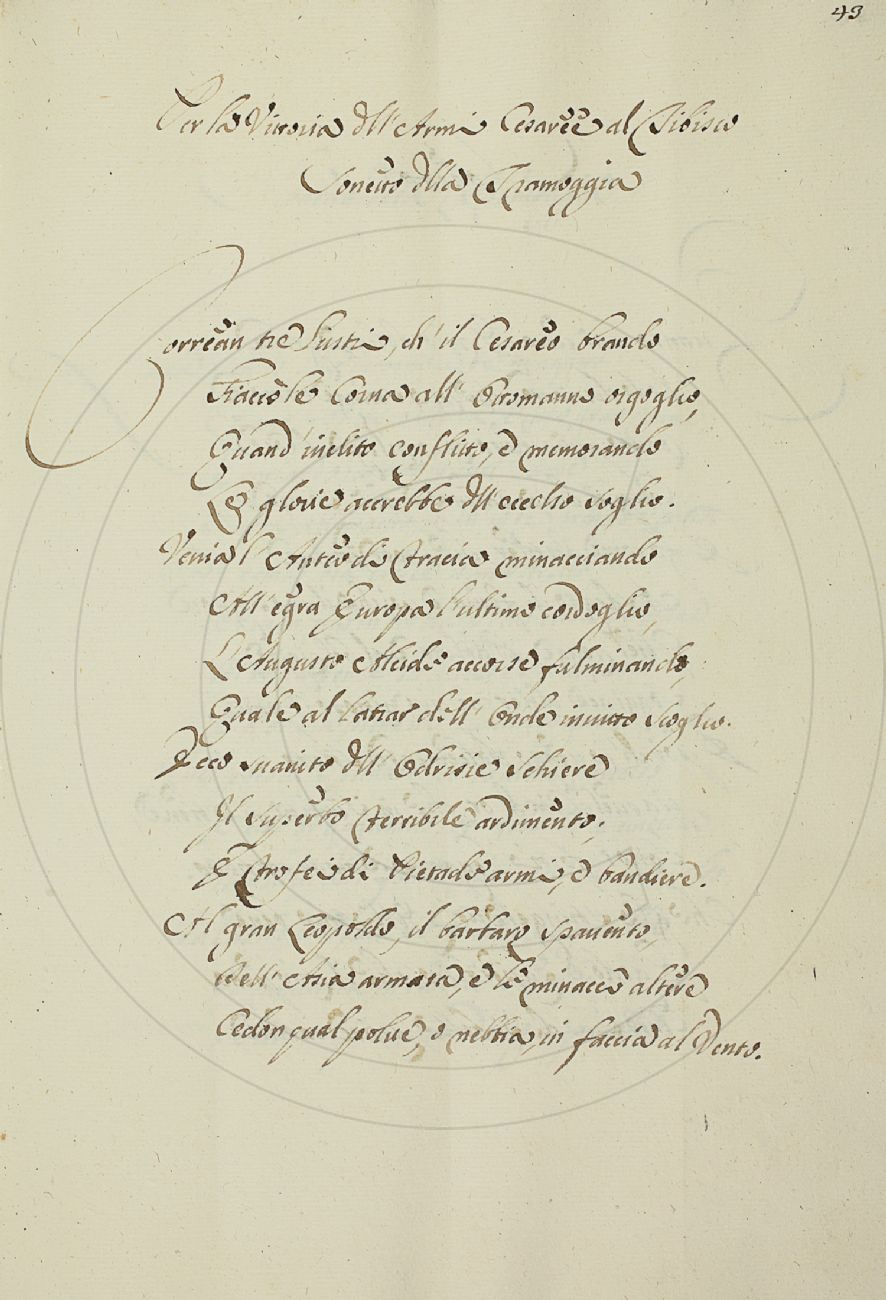 43
Per la Vittoria dell' Armi Cesaree al Tibisco
Sonetto della Tramoggia
Correan tre lustri, ch' il Cesareo brando
Fiaccò le Corna all' Ottomanno orgoglio,
Quand' inclito conflitto, e memorando
Le glorie accrebbe dell' eccelso soglio.
Venia l' Anteo di Tracia minacciando
All' egra Europa l'ultimo cordoglio,
L' Augusto Alcide accorse fulminando,
Quale al latrar dell' Onde invitto scoglio.
Ecco suanito dell' Odrisie schiere
Il superbo terribile ardimento;
E trofei di Pietade armi, e bandiere.
Al gran Leopoldo, il barbaro spauento,
Dell' Asia armata, e le minacce altere
Cedon qual polue, o nebbia, in faccia al Vento.